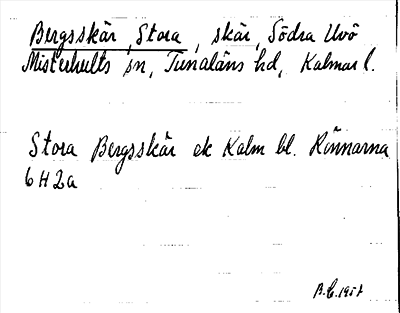 Bergsskär, Stora, skär, Södra Uvö
Misterhults sn, Tunaläns hd, Kalmar l.
Stora Bergsskär ek Kalm bl. Rönnarna
6H2a
B.C. 1951